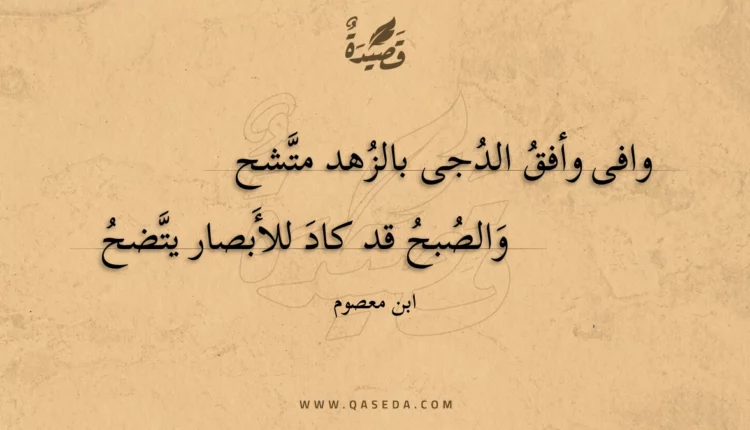 قَصِيدَةٌ
وافى وأفقُ الدُجى بالزُهد متَّشح
وَالصُبحُ قد كادَ للأَبصار يتَّضحُ
ابن معصوم
WWW.QASEDA.COM